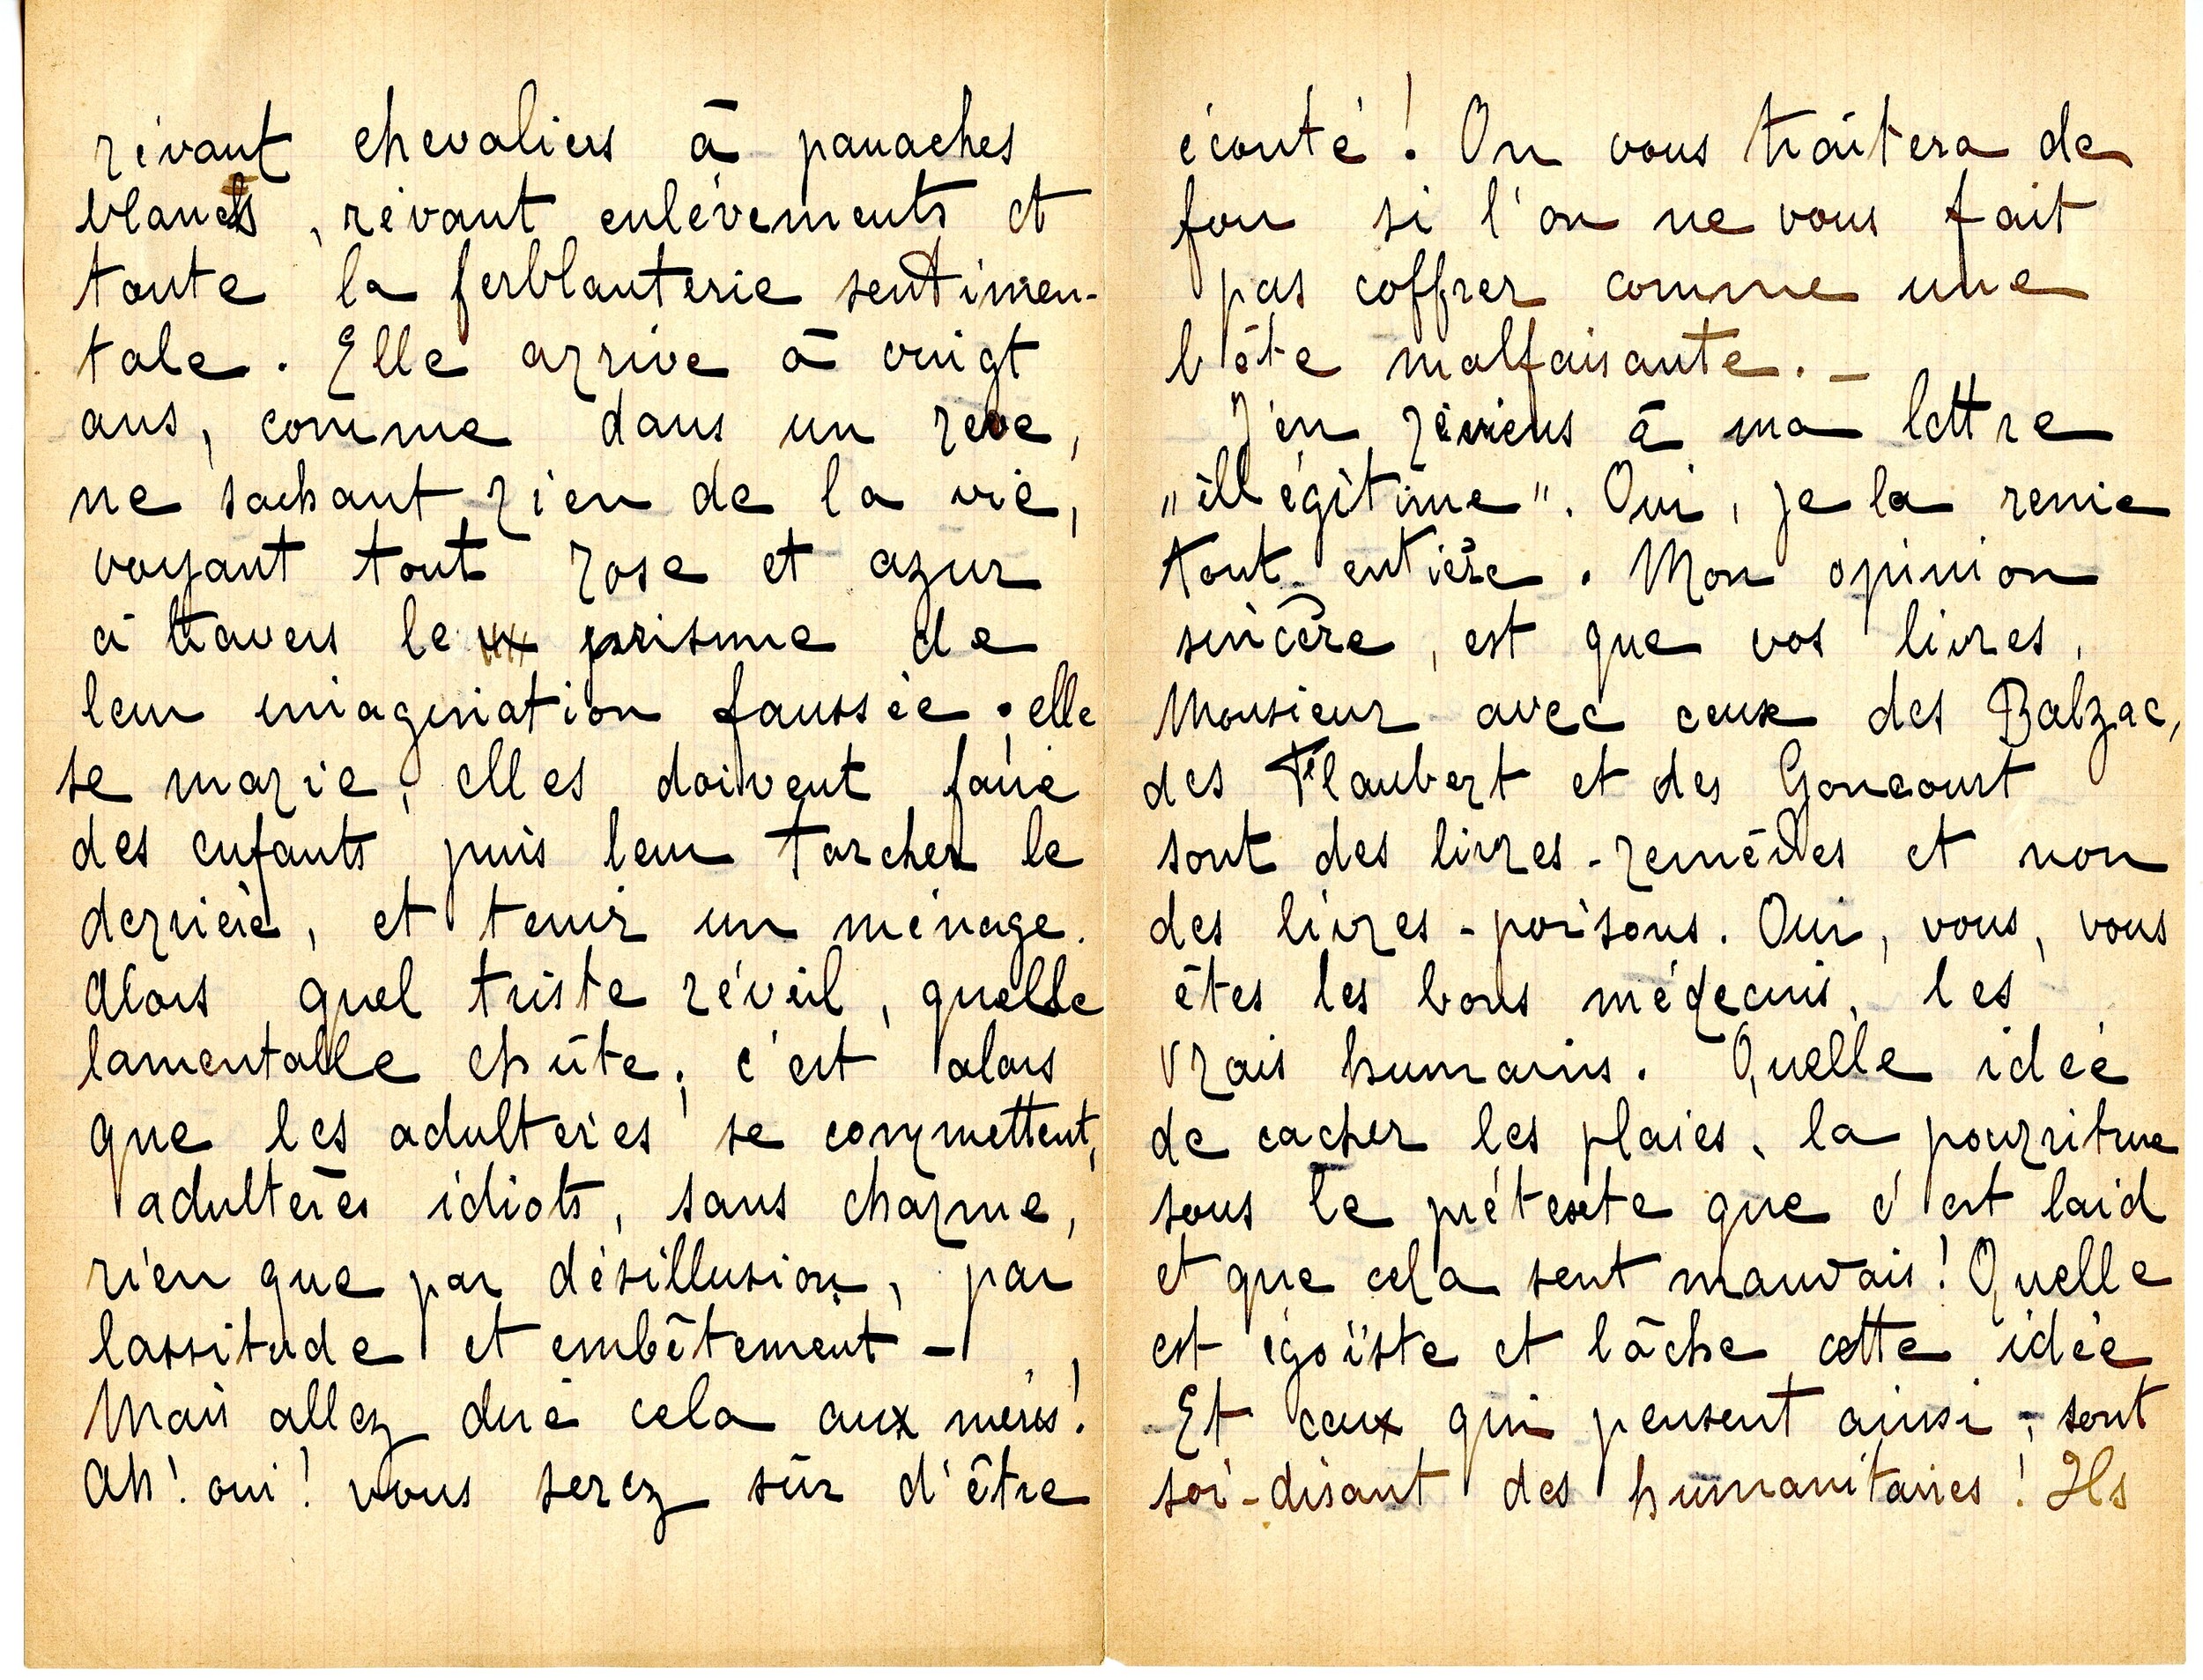 rêvant chevaliers à panaches
blancs, rêvant enlèvements et
toute la ferblanterie sentimen-
tale. Elle arrive à vingt
ans, comme dans un rêve,
ne sachant rien de la vie,
voyant tout rose et azur
à travers le prisme de
leur imagination faussée. elle
se marie, elles doivent faire
des enfants puis leur torcher le
derrière, et tenir un ménage.
Alors quel triste réveil, quelle
lamentable chûte; c'est alors
que les adultères se commettent,
adultères idiots, sans charme,
rien que par désillusion, par
lassitude et embêtement –
Mais allez dire cela aux mères!
Ah! oui! vous serez sûr d'être
écouté! On vous traîtera de
fou si l'on ne vous fait
pas coffrer comme une
bête malfaisante. –
J'en reviens à ma lettre
„illégitime". Oui, je la renie
tout-entière. Mon opinion
sincère, est que vos livres,
Monsieur avec ceux des Balzac,
des Flaubert et des Goncourt
sont des livres-remèdes et non
des livres-poisons. Oui, vous, vous
êtes les bons médecins, les
vrais humains. Quelle idée
de cacher les plaies, la pourriture
sous le prétexte que c'est laid
et que cela sent mauvais! Quelle
est égoïste et lâche cette idée
Et ceux qui pensent ainsi, sont
soi-disant des humanitaires! Ils